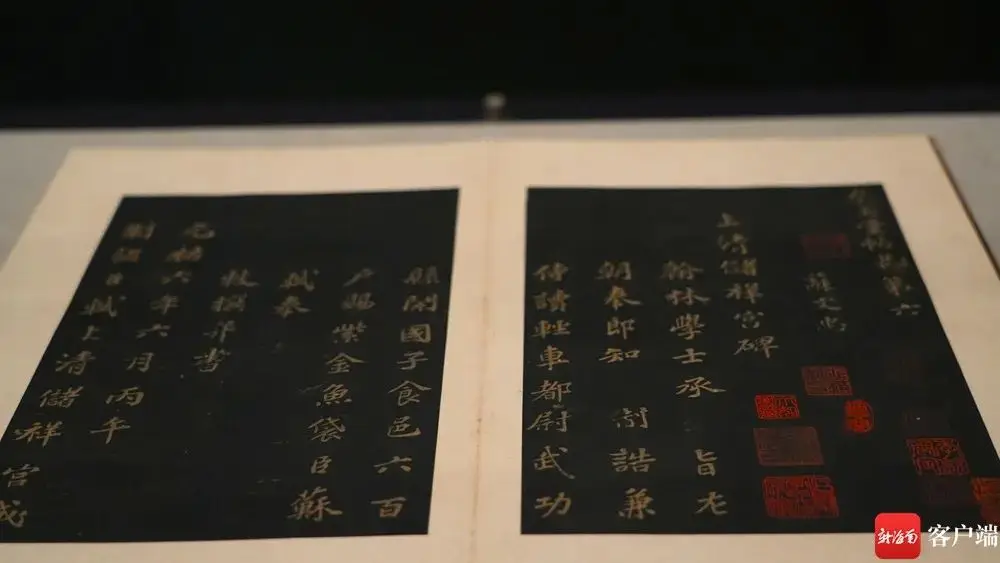 第六
蘇文忠
上清儲祥宮碑
翰林學士承 旨左
朝奉郎知 制誥兼
侍讀輕車都尉武功
縣開國子食邑六百
戶賜紫金魚袋臣蘇
軾奉
敕撰并書
元祐六年六月丙午
制詔臣軾上清儲祥宮成
新海南 客户端